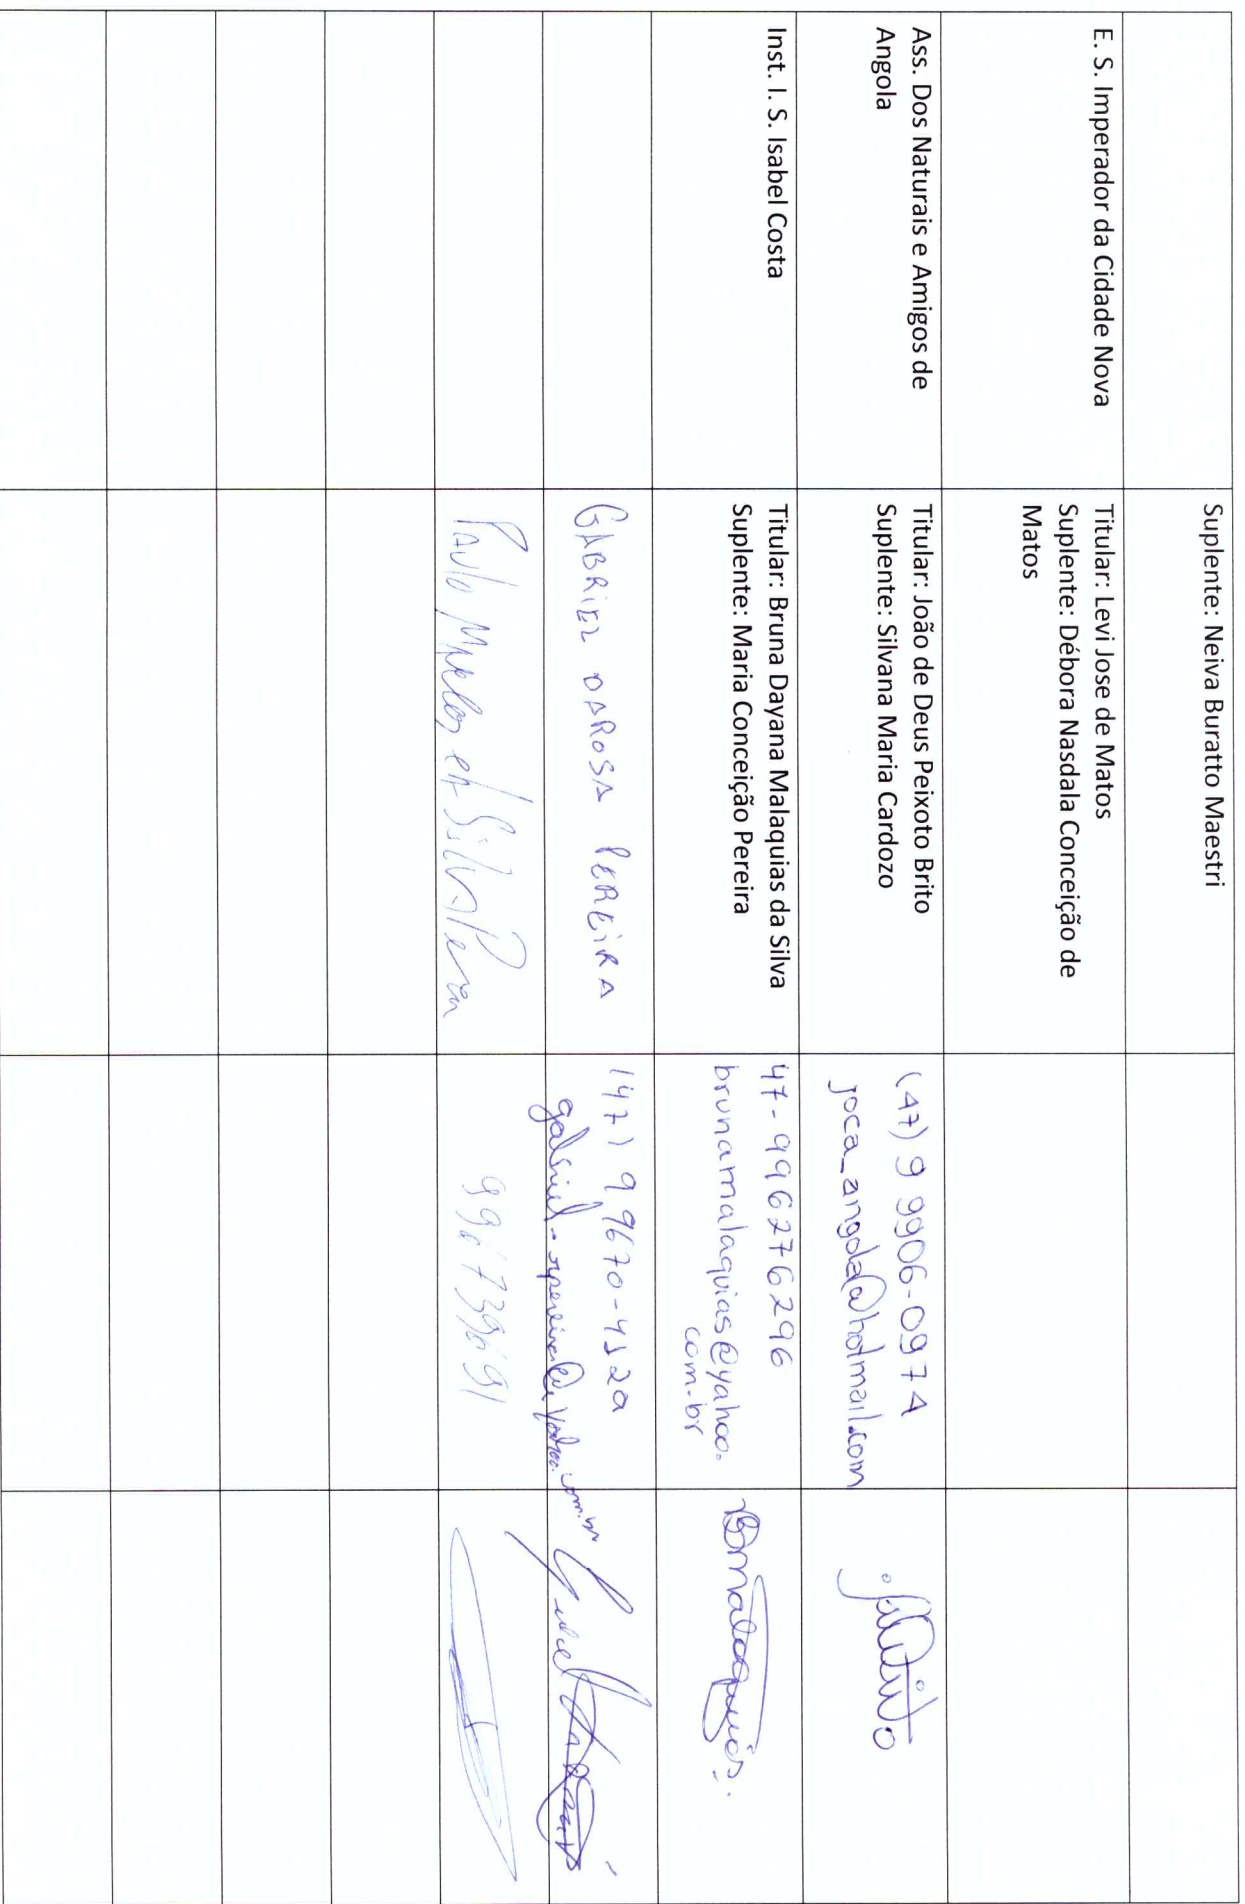 Suplente: Neiva Buratto Maestri
E. S. Imperador da Cidade Nova
Titular: Levi Jose de Matos
Suplente: Débora Nasdala Conceição de
Matos
Ass. Dos Naturais e Amigos de
Angola
Titular: João de Deus Peixoto Brito
Suplente: Silvana Maria Cardozo
(47) 9 9906-0974
joca_angola@hotmail.com
Inst. I. S. Isabel Costa
Titular: Bruna Dayana Malaquias da Silva
Suplente: Maria Conceição Pereira
47-996276296
brunamalaquias@yahoo.
com.br
Bmalaquias.
GABRIEL DAROSA PEREIRA
(47) 9,9670-4520
Paulo da Silva
996739691